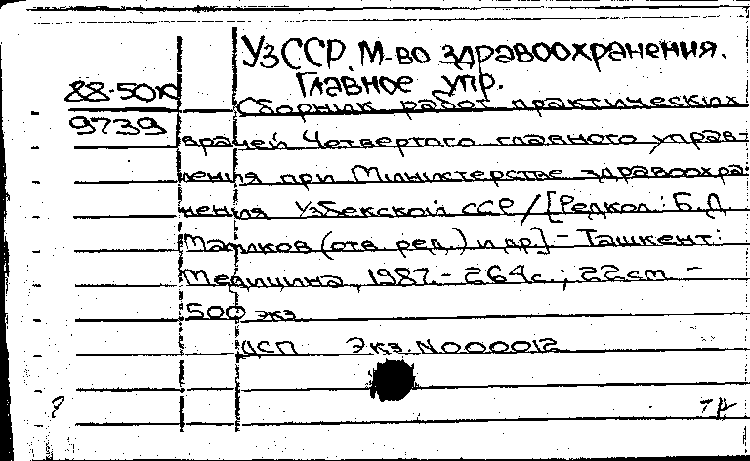 УзССР. М-во здравоохранения.
Главное упр.
88-50К
9739
Сборник работ практических
врачей Четвертого главного управ-
ления при Министерстве здравоохра-
нения Узбекской ССР / [Редкол.: Б.Д.
(отв. ред.) и др.] - Ташкент:
Медицина, 1987. - 264с.; 22см. -
500 экз.
ДСП Экз. N000012